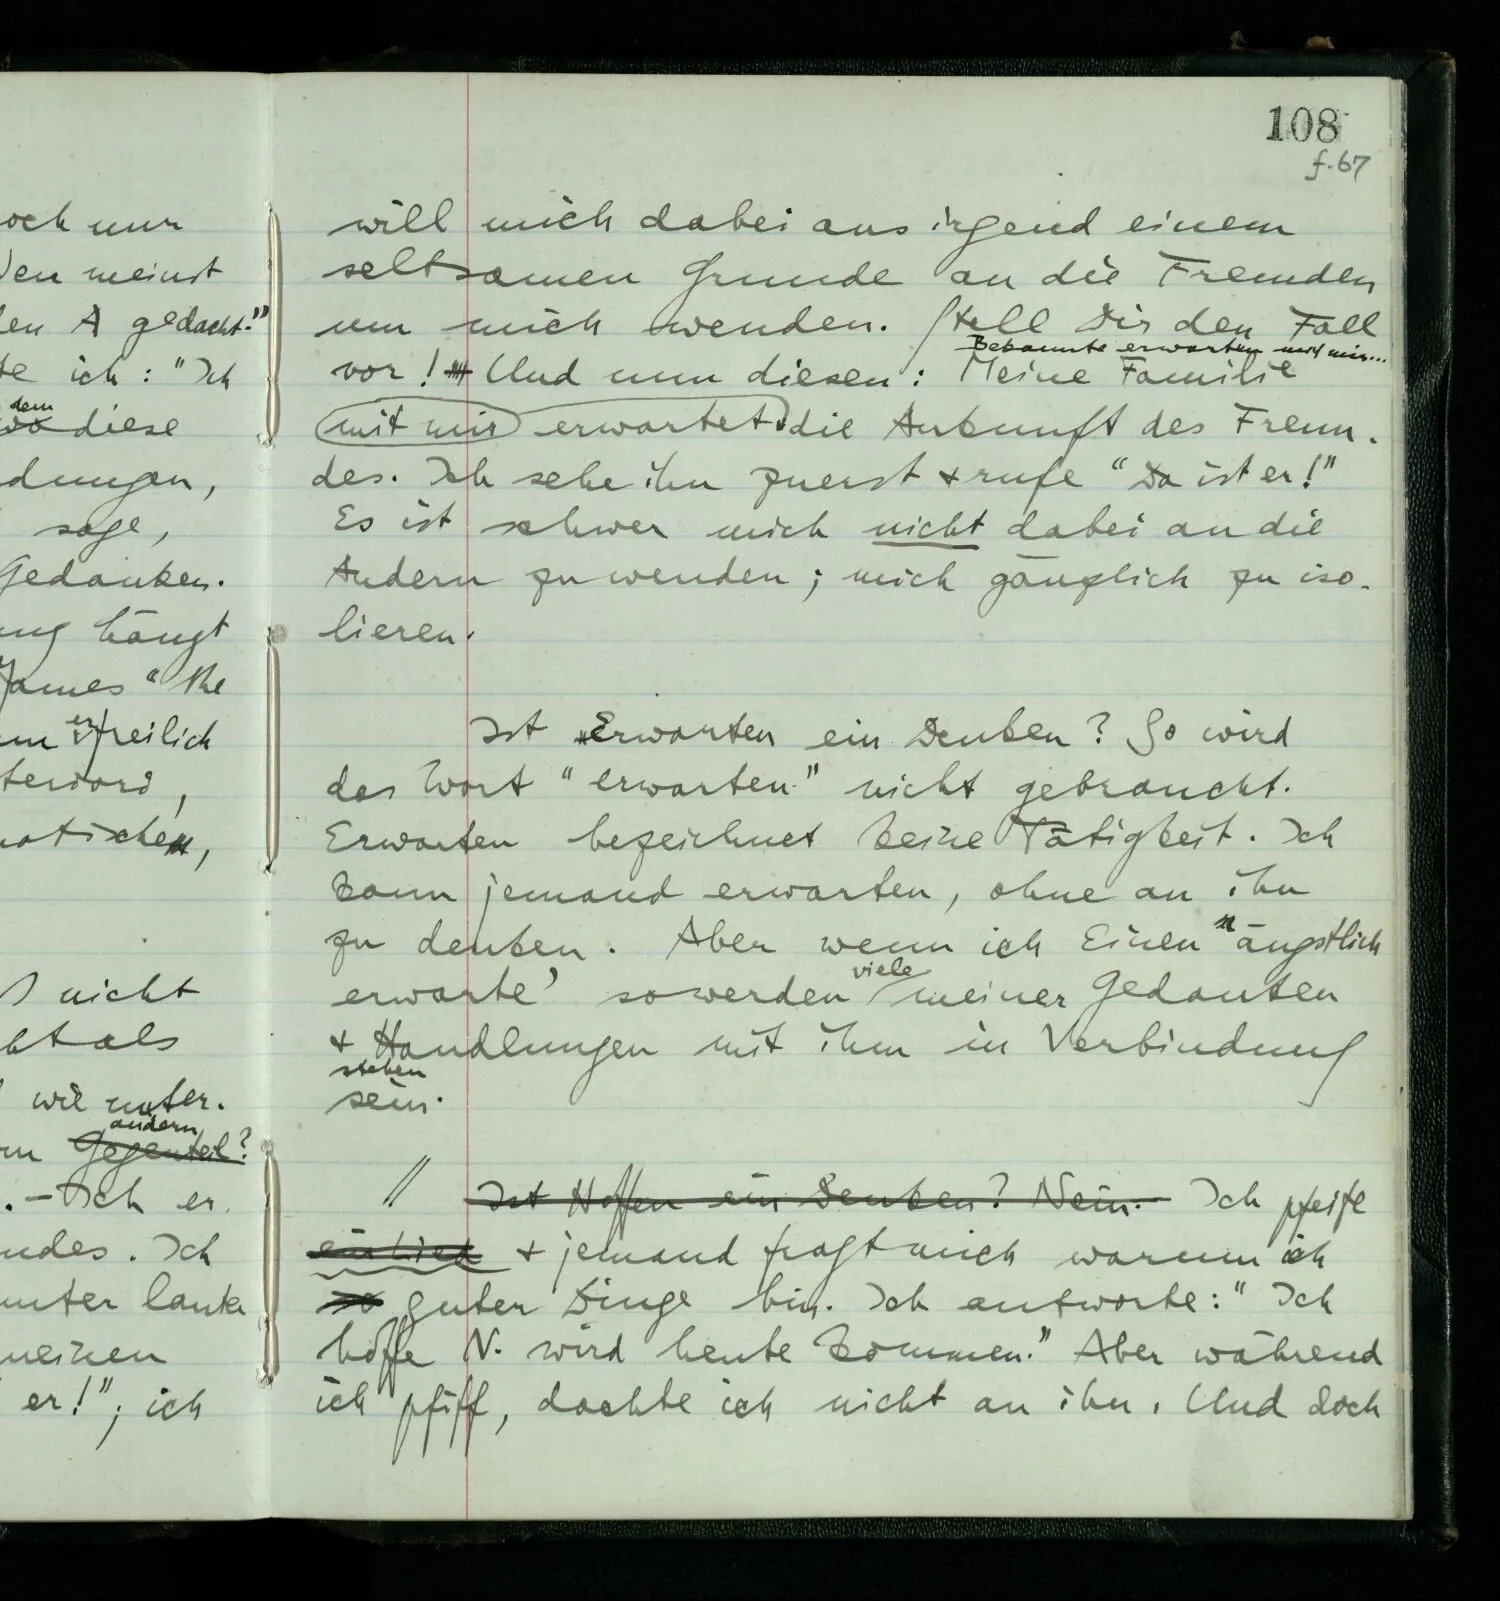 108
f. 67
och nur
den meinst
en A gedacht."
te ich: "Ich
dem
wo diese
dungen,
sage,
Gedanken.
ung hängt
James "the
freilich
nicht
ht als
wie unter.
andern
Gegenteil?
. – Ich er.
ndes. Ich
unter lauter
meinen
er!"; ich
will mich dabei aus irgend einem
seltsamen Grunde an die Fremden
um mich wenden. Stell Dir den Fall
Bekannte erwarten mit mir...
vor! Und nun diesen: Meine Familie
mit mir erwartet die Ankunft des Freun-
des. Ich sehe ihn zuerst & rufe "Da ist er!"
Es ist schwer mich nicht dabei an die
Andern zu wenden; mich gänzlich zu iso-
lieren.
Ist Erwarten ein Denken? So wird
das Wort "erwarten" nicht gebraucht.
Erwarten bezeichnet keine Tätigkeit. Ich
kann jemand erwarten, ohne an ihn
zu denken. Aber wenn ich Einen ängstlich
viele
erwarte, so werden meiner Gedanken
& Handlungen mit ihm in Verbindung
stehen
sein.
// Ist Hoffen ein Denken? Nein. Ich pfeife
ein Lied & jemand fragt mich warum ich
so guter Dinge bin. Ich antworte: "Ich
hoffe N. wird heute kommen." Aber während
ich pfiff, dachte ich nicht an ihn. Und doch